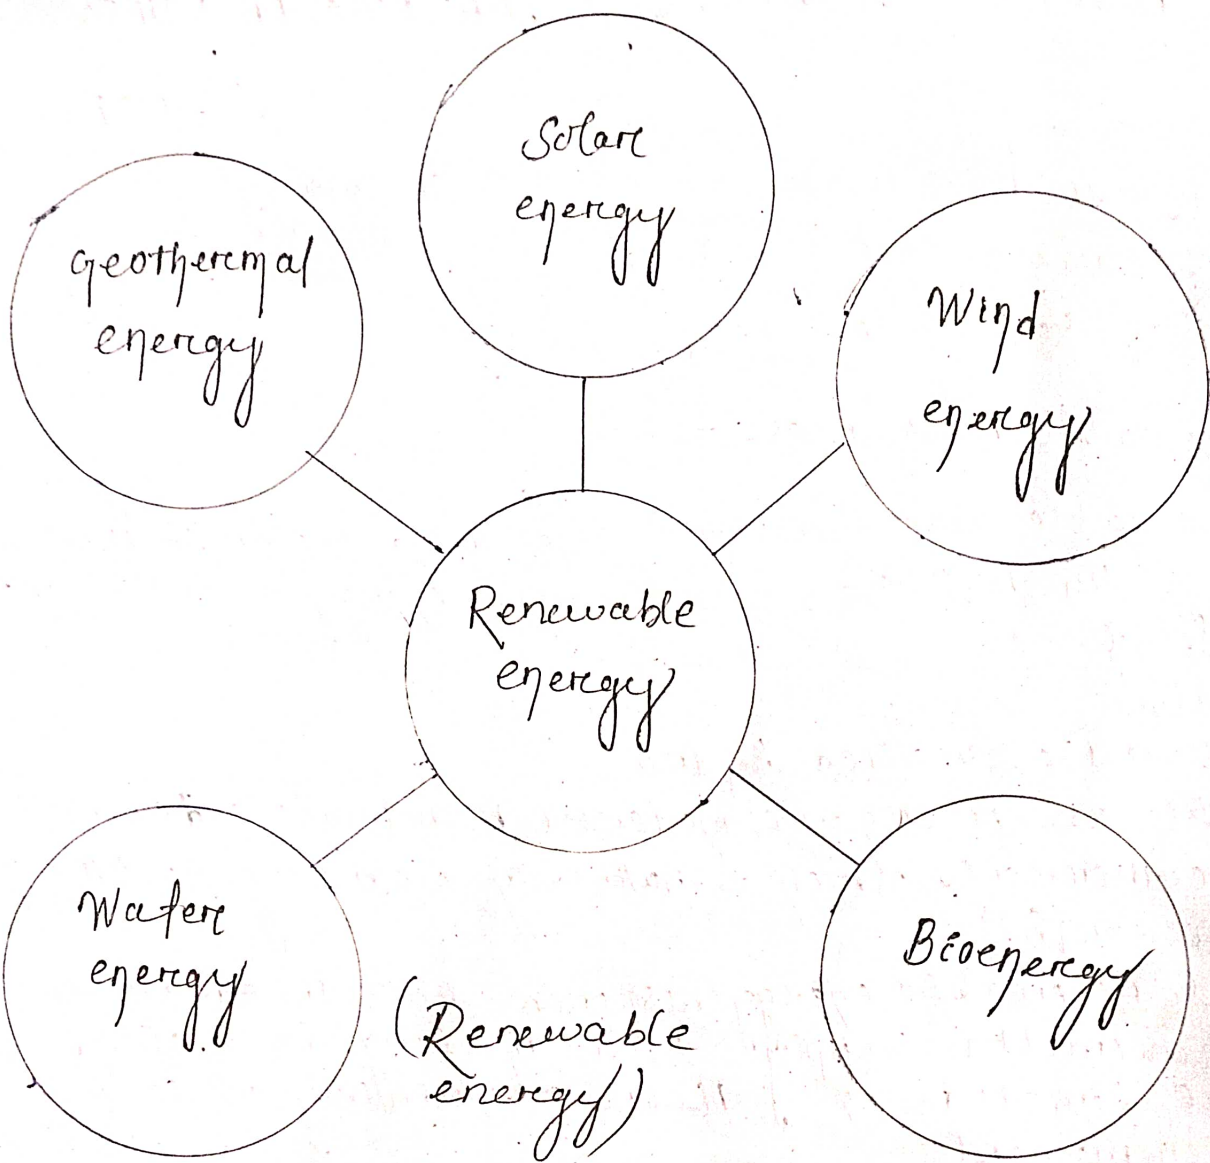 Solar
energy
Geothermal
energy
Wind
energy
Renewable
energy
Water
energy
Bioenergy
(Renewable
energy)